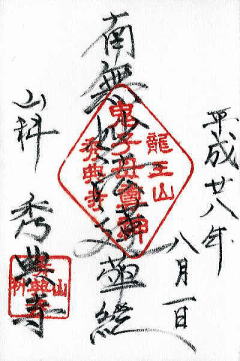 平成廿八年
八月一日
南無妙法蓮華経
龍王山
鬼子母尊神
秀典寺
山科 秀典寺